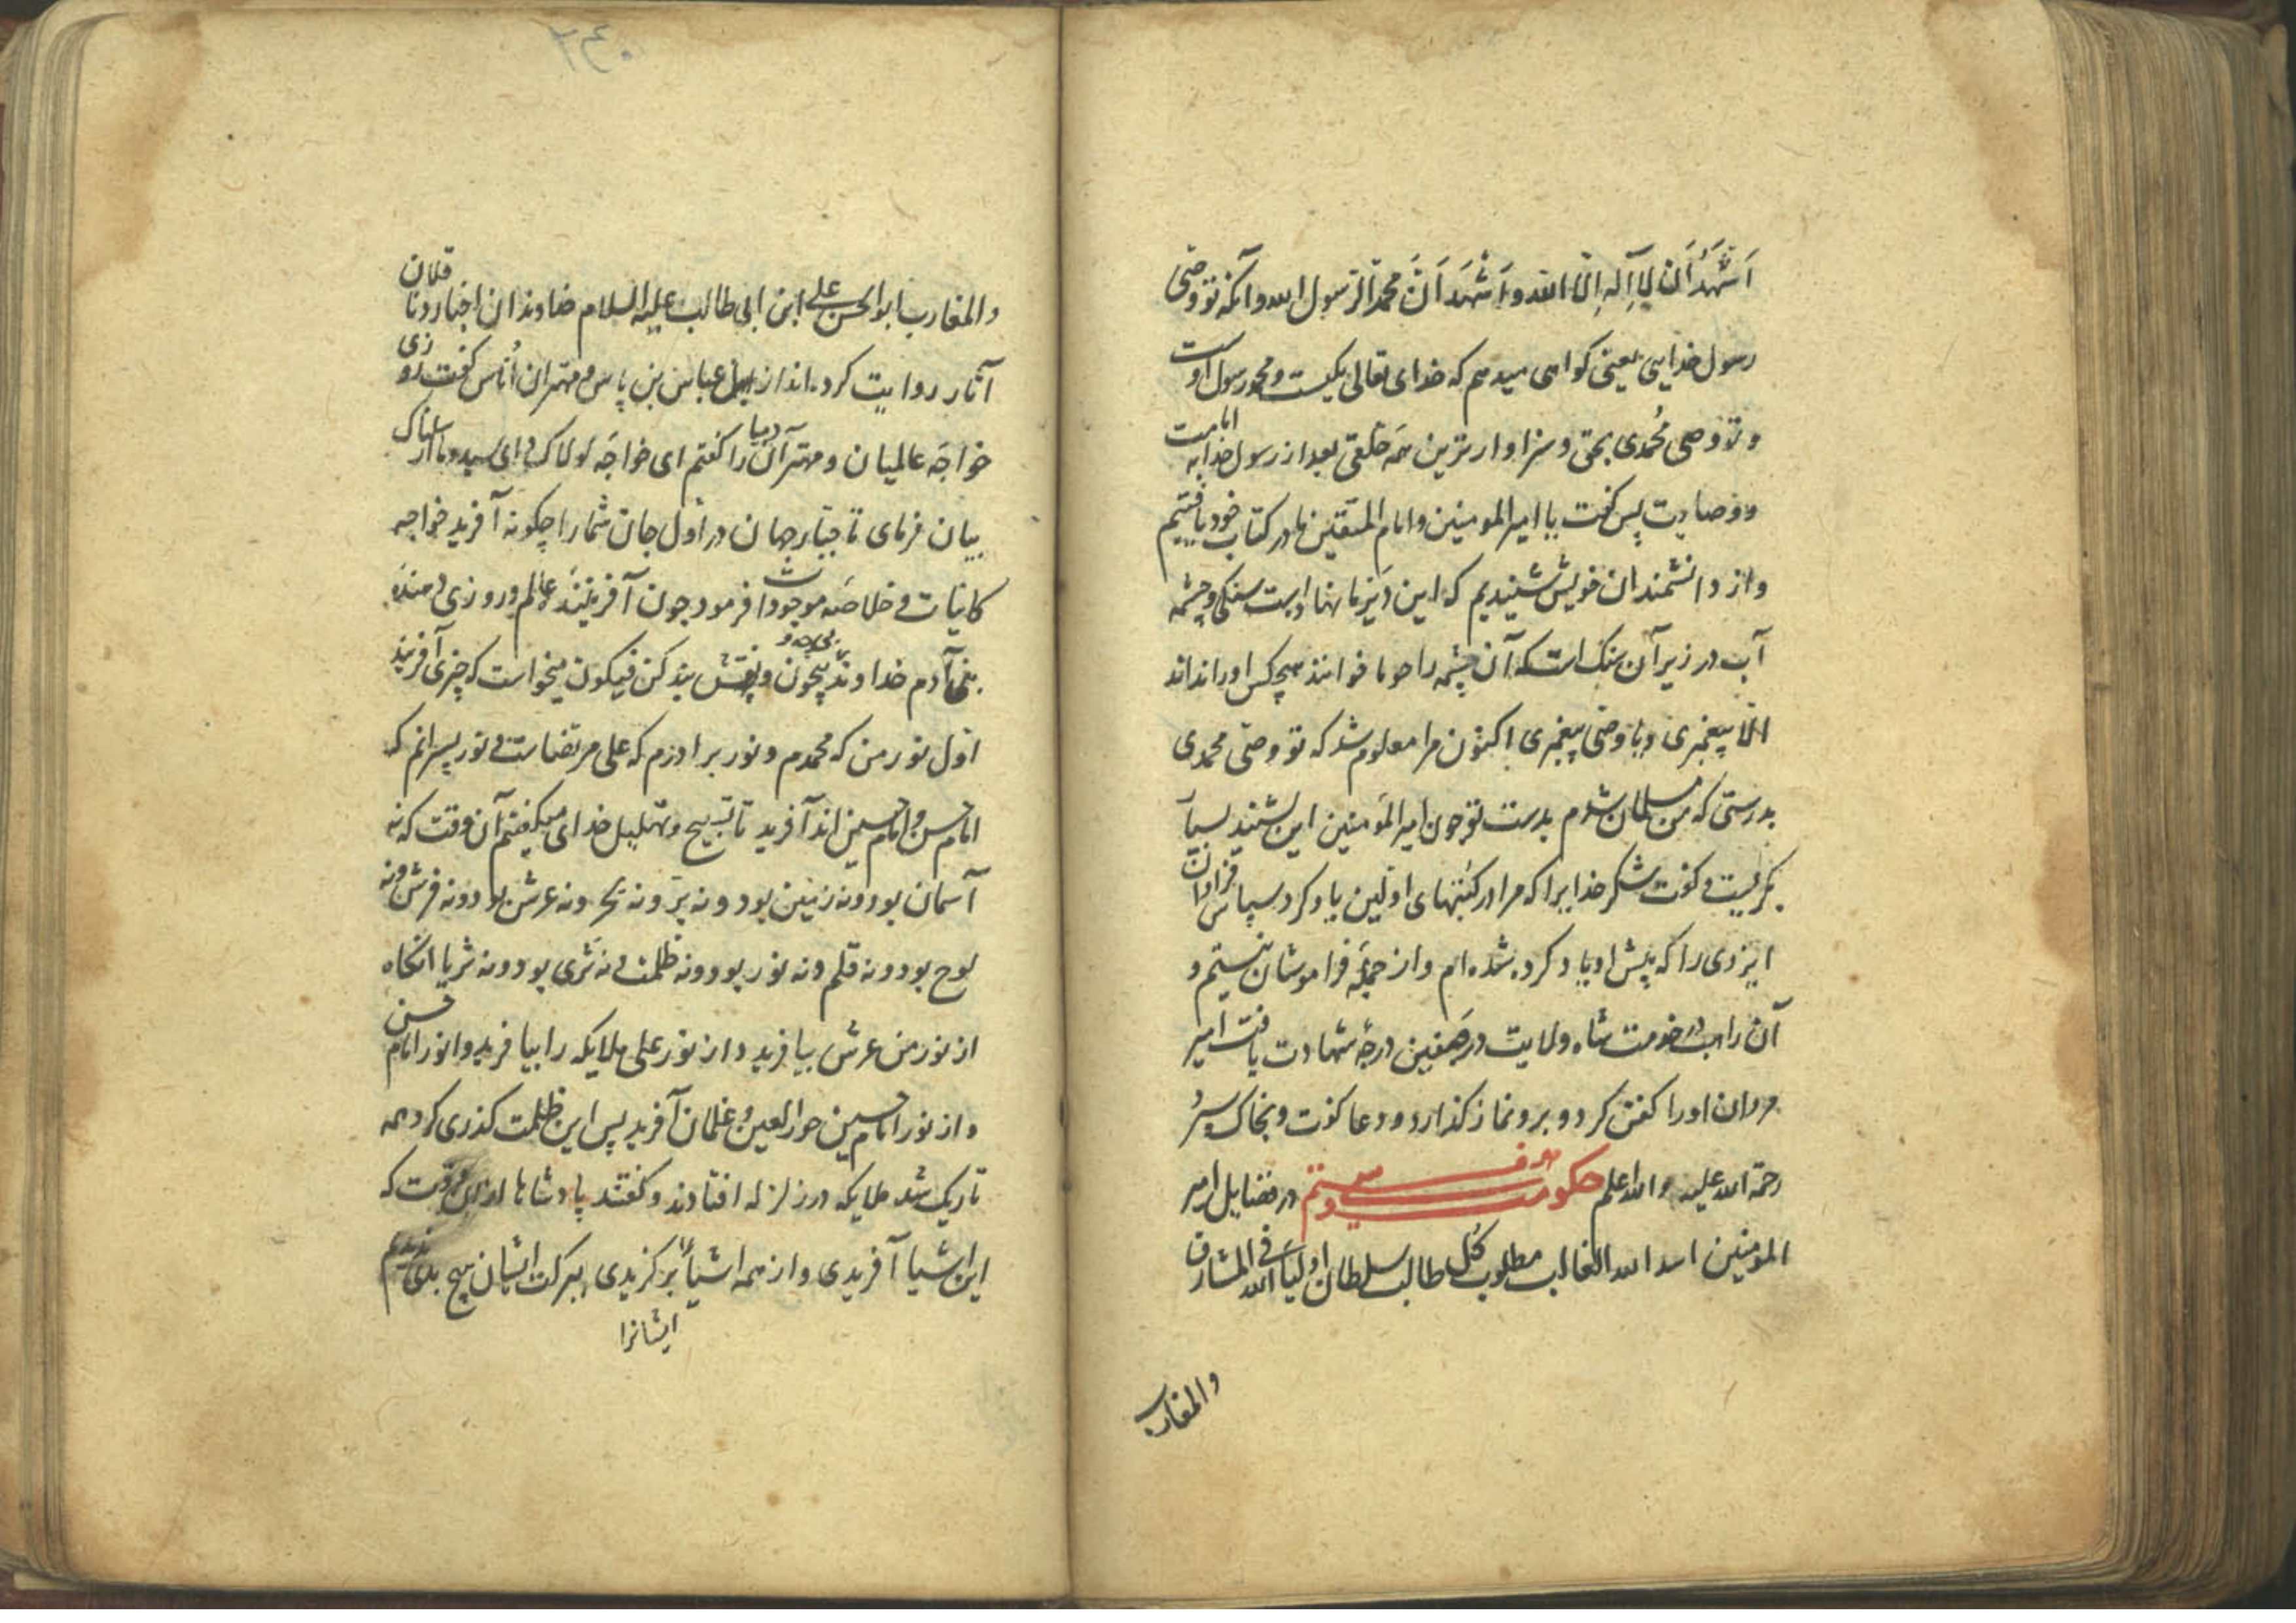 اَشْهَدُ اَن لا اِلٰه اِلّا الله و اَشْهَدُ اَنَّ محمداً رسول الله و آنکه تو وصی
رسول خدایی یعنی کواهی میدهم که خدای تعالی یکیست و محمد رسول اوست
و تو وصی محمدی بحق و سزاوارترین همه خلقی بعد از رسول خدا به امامت
و وصایت پس کفت یا امیر المومنین و امام المتقین ما در کتاب خود یافتیم
و از دانشمندان خویش شنیدیم که این دیر نا نهاده است سنکی و چشمه
آب در زیر آن سنک است که آن چشمه را حوما خوانند هیچکس او را نداند
الّا پیغمبری و یا وصی پیغمبری اکنون مرا معلوم شد که تو وصی محمدی
بدرستی که من مسلمان شدم بدست تو چون امیر المومنین این بشنید بسیار
بکریست و کفت شکر خدایرا که مرا در کتبهای اولین یاد کرد سپاس فراوان
ایزدی را که پیش او یاد کرده شده ام و از جمله فراموشان نیستم و
آن راهب در خدمت شاه ولایت در صفین درجهٔ شهادت یافت امیر
مردان او را کفن کرد و برو نماز کذارد و دعا کفت و بخاک سپرد
رحمة الله علیه و الله اعلم حکومت سی و در فضایل امیر
المومنین اسد الله الغالب مطلوب کل طالب سلطان اولیاء الله فی المشارق
والمغارب
۲۴۰
والمغارب ابوالحسن علی ابن ابی طالب علیه السلام خداوندان اخبار و ناقلان
آثار روایت کرده اند از عباس بن مهتران اُناس کفت روزی
خواجه عالمیان و مهتر آن دنیا را کفتم ای خواجه لولاک و ای سید
بیان فرمای تا جبار جهان در اول جان شما را چکونه آفرید خواجه
کاینات و خلاصه موجودات فرمود چون آفرینندهٔ عالم و روزی دهنده
بنی آدم خداوند بیچون و نقش بند کن فیکون میخواست که چیزی آفریند
اوّل نور من که محمدم و نور برادرم که علی مرتضاست و نور پسرانم که
امام حسن و امام حسین اند آفرید تا تسبیح و تهلیل خدای میکفتیم آن وقت که نه
آسمان بود و نه زمین بود و نه بر و نه بحر و نه عرش بود و نه فرش و نه
لوح بود و نه قلم و نه نور بود و نه ظلمت و نه ثری بود و نه ثریا آنکاه
از نور من عرش بیافرید و از نور علی ملایکه را بیافرید و از نور امام حسن
و از نور امام حسین حور العین و غلمان آفرید پس این ظلمت کذری کرد همه
تاریک شد ملایکه در زلزله افتادند و کفتند پادشاها از آن وقت که
این اشیا آفریدی و از همه اشیا برکزیدی ببرکت ایشان هیچ بدی ندیدیم
ایشانرا